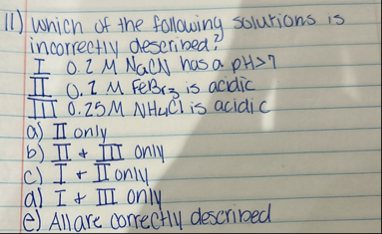 11) which of the following solutions is
incorrectly described?
I 0.2 M NaCN has a pH>7
II 0.2 M FeBr3 is acidic
III 0.25M NH4Cl is acidic
a) II only
b) II + III only
c) I + II only
d) I + III only
e) All are correctly described